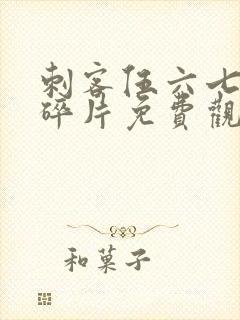 刺客伍六七
碎片免費觀
和菓子